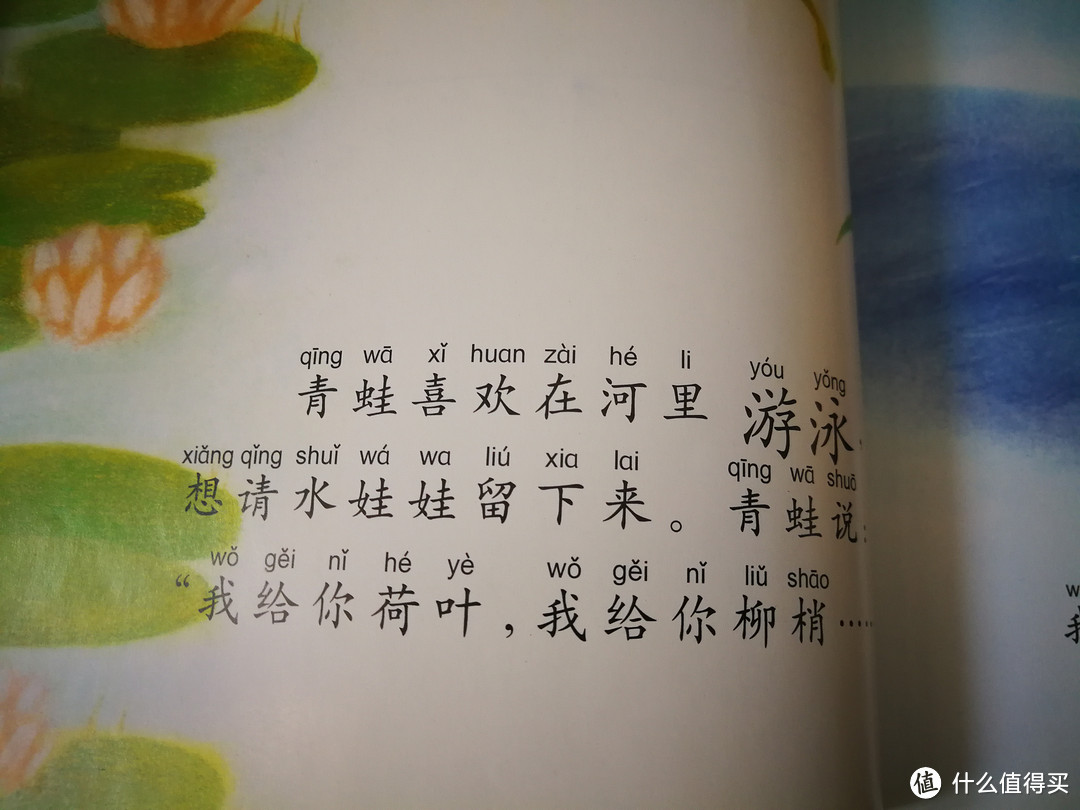 qīng wā xǐ huan zài hé li yóu yǒng
青蛙喜欢在河里游泳，
xiǎng qǐng shuǐ wá wa liú xia lai qīng wā shuō
想请水娃娃留下来。青蛙说：
wǒ gěi nǐ hé yè wǒ gěi nǐ liǔ shāo
“我给你荷叶，我给你柳梢……
值 什么值得买